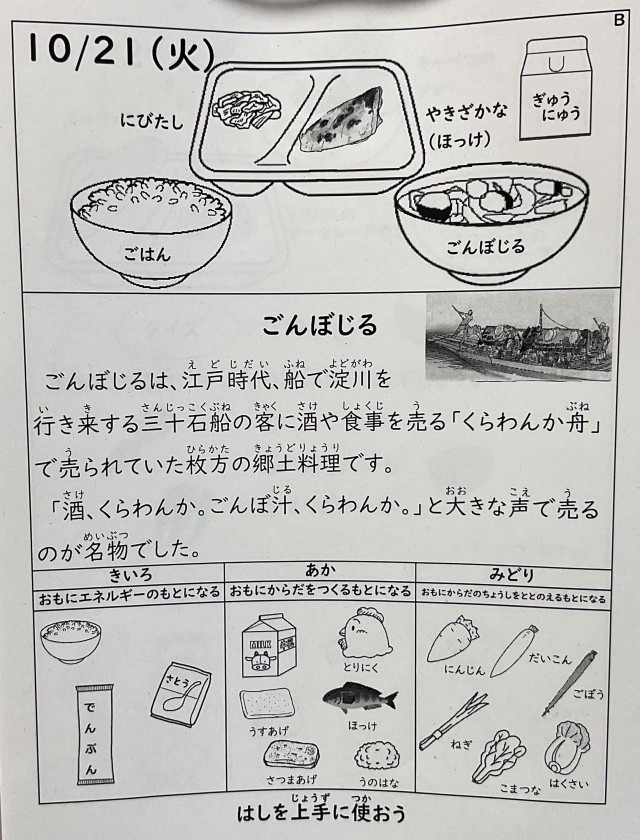 B
10/21(火)
にびたし
やきざかな
(ほっけ)
ぎゅう
にゅう
ごはん
ごんぼじる
ごんぼじる
ごんぼじるは、江戸時代、船で淀川を
行き来する三十石船の客に酒や食事を売る「くらわんか舟」
で売られていた枚方の郷土料理です。
「酒、くらわんか。ごんぼ汁、くらわんか。」と大きな声で売る
のが名物でした。
きいろ
おもにエネルギーのもとになる
さとう
でんぷん
あか
おもにからだをつくるもとになる
MILK
とりにく
うすあげ
ほっけ
さつまあげ
うのはな
みどり
おもにからだのちょうしをととのえるもとになる
にんじん
だいこん
ごぼう
ねぎ
こまつな
はくさい
はしを上手に使おう